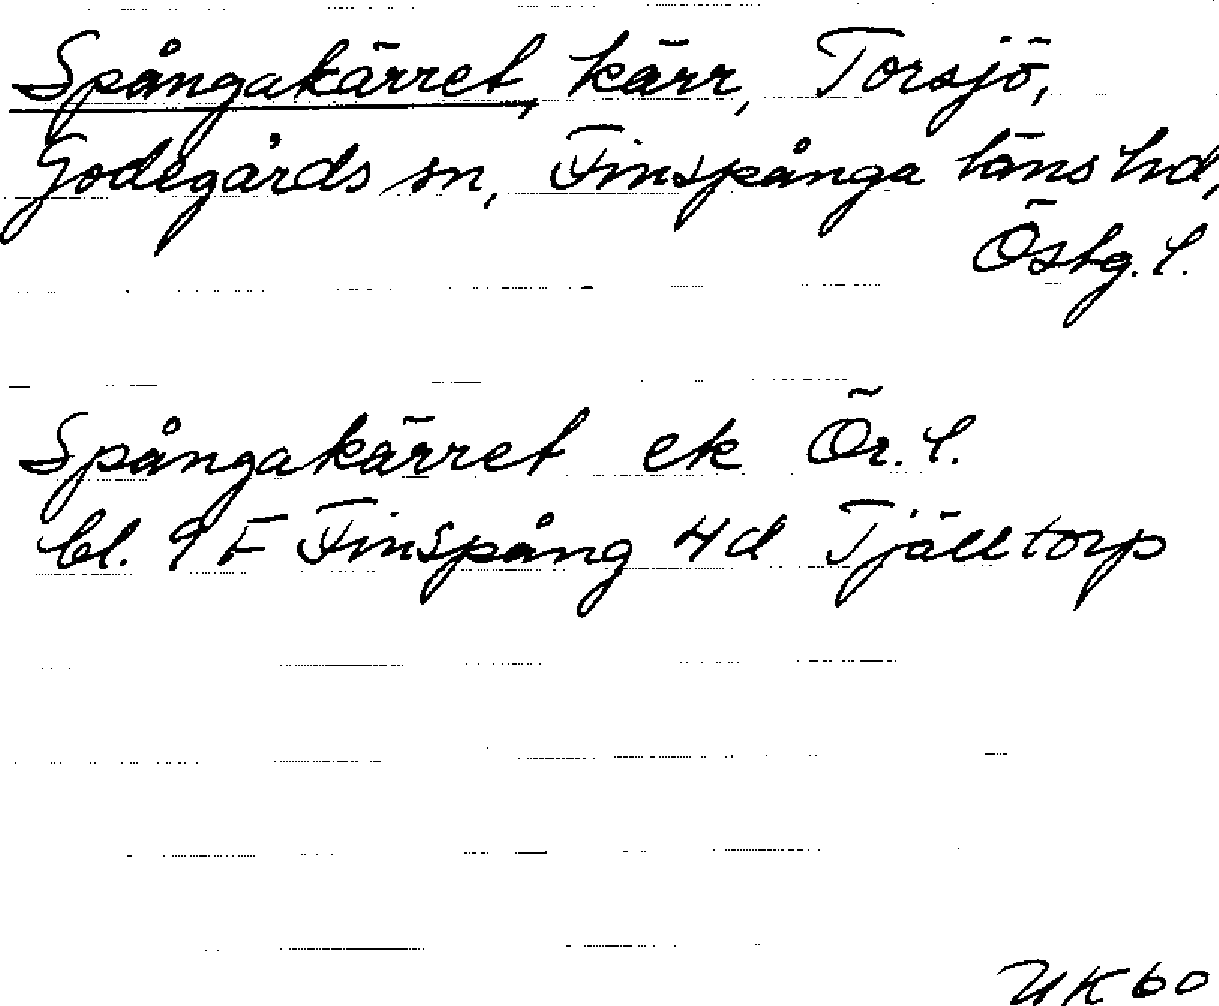 Spångakärret, kärr, Torsjö,
Godegårds sn, Finspånga läns hd,
Östg. l.
Spångakärret ek Ör. l.
bl. 9 F Finspång 4d Tjälltorp
UK 60